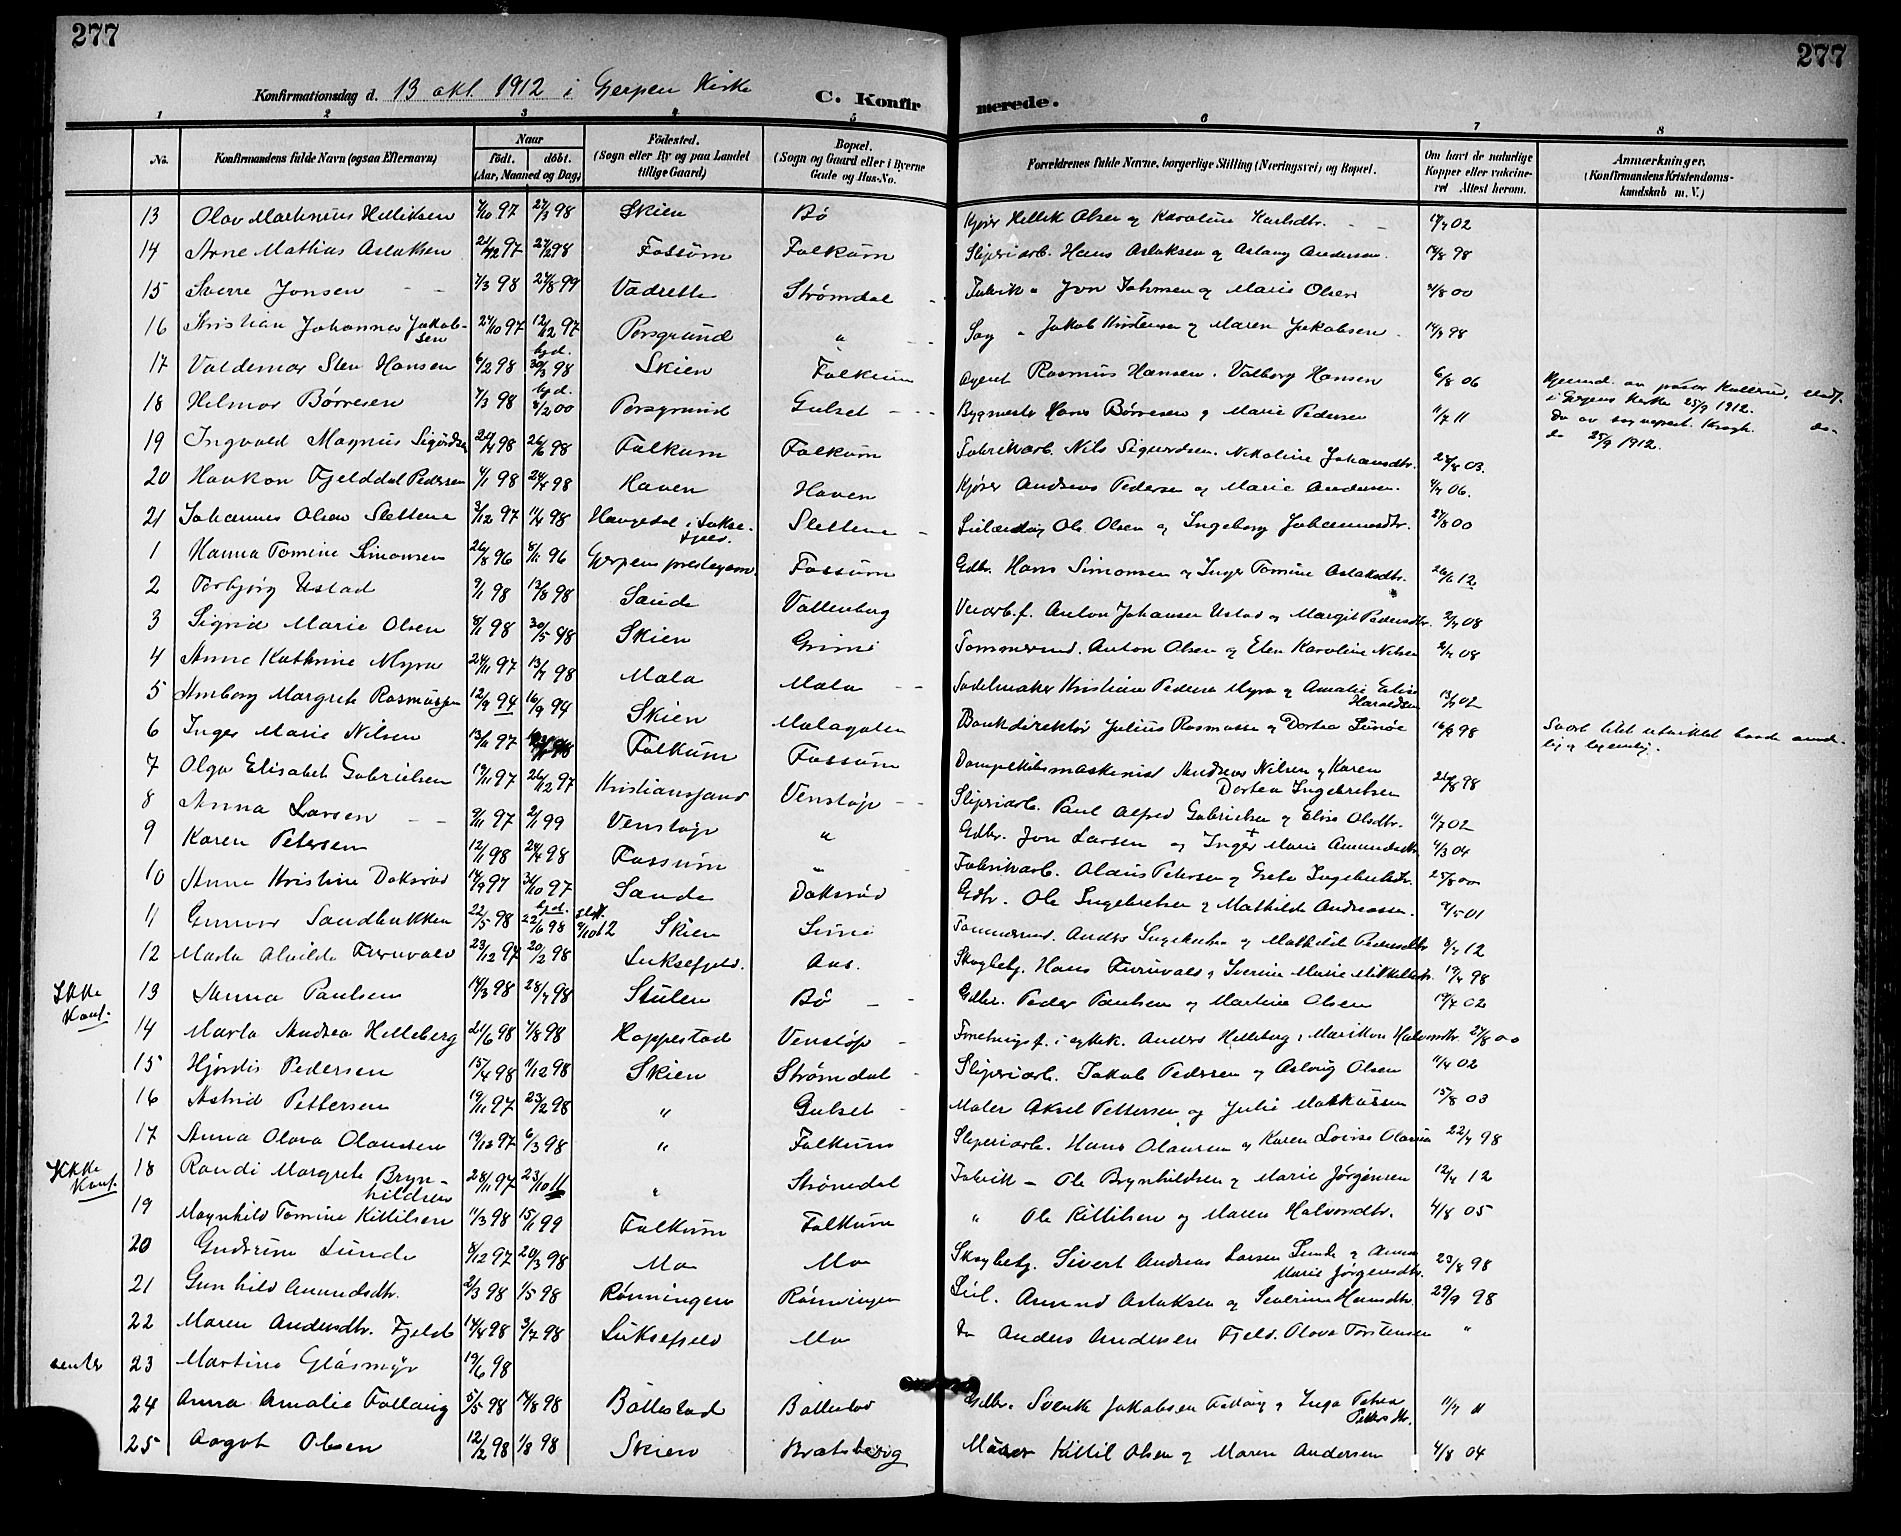 277
277
Konfirmationsdag d. 13 okt. 1912 i Gerpen Kirke
C. Konfirmerede.
1 2 3 4 5 6 7 8
No. Konfirmandens fulde Navn (ogsaa Efternavn) Naar født. døbt. (Aar, Maaned og Dag) Fødested. (Sogn eller By og paa Landet tillige Gaard) Bopæl. (Sogn og Gaard eller i Byerne Gade og Hus-No. Forældrenes fulde Navne, borgerlige Stilling (Næringsvei) og Bopæl. Om havt de naturlige Kopper eller vakcineret Attest herom. Anmærkninger. (Konfirmandens Kristendomskundskab m. V.)
13 Olav Martinius Helliksen 7/10 97 27/3 98 Skien Bø Kjører Hellik Olsen og Karoline Karlsdtr. 17/7 02
14 Arne Mathias Aslaksen 21/12 97 27/2 98 Fossum Falkum Sliperiarb. Hans Aslaksen og Aslaug Andersen 14/8 98
15 Sverre Jonsen 7/3 98 27/8 99 Vadrette Strømdal Fabrik " Jon Johnsen og Marie Olsen 31/8 00
16 Kristian Johannes Jakobsen 27/10 97 12/12 97 Porsgrund " Sag " Jakob Kristensen og Maren Jakobsen 14/9 98
17 Valdemar Sten Hansen 6/2 98 hjd. 30/3 98 Skien Falkum Agent Rasmus Hansen. Valborg Hansen 6/8 06
18 Hilmar Børresen 7/3 98 hjd. 8/2 00 Porsgrund Gulset Bygmester Hans Børresen og Marie Pedersen 11/7 11
19 Ingvald Magnus Sigurdsen 24/4 98 26/6 98 Falkum Falkum Fabrikarb. Nils Sigurdsen. Nikoline Johansdtr. 28/8 03.
20 Haakon Fjelddal Pedersen 4/1 98 24/4 98 Haven Haven Kjører Andreas Pedersen og Marie Andersen. 4/7 06.
21 Johannes Olsen Slettene 3/12 97 11/4 98 Haugedal i Luksefjeld. Slettene Leilænding Ole Olsen og Ingeborg Johannesdtr. 27/8 00
1 Hanna Tomine Simonsen 26/8 96 8/11 96 Gjerpens prestegaard Fossum Gdbr. Hans Simonsen og Inger Tomine Aslaksdtr. 26/6 12
2 Torbjørg Ustad 9/1 98 13/8 98 Sande Vattenberg Anton Johansen Ustad og Margit Pedersdtr. 2/7 08
3 Sigrid Marie Olsen 8/1 98 30/5 98 Skien Grini Tømmermd. Anton Olsen og Elen Karoline Nilsen 2/7 08
4 Anne Kathrine Myra 24/11 97 13/4 98 Mæla Mæla Sadelmaker Kristian Pedersen Myra og Amalie Elise Haraldsen 13/9 02
5 Amborg Margrete Rasmussen 12/9 94 16/9 94 Skien Mælagaten Bankdirektør Julius Rasmussen og Dortea Lunøe 16/6 98
6 Inger Marie Nilsen 13/11 97 Falkum Fossum Dampkilsmaskinist Andreas Nilsen og Karen Dortea Ingebretsen 26/8 98
7 Olga Elisabet Gabrielsen 19/11 97 26/12 97 Kristianssand Venstøp Sliperiarb. Paul Alfred Gabrielsen og Elise Olsdtr. 11/7 02
8 Anna Larsen 9/11 97 2/1 99 Venstøp " Gdbr. Jon Larsen og Inger Marie Amundsdtr. 4/3 04
9 Karen Petersen 12/1 98 24/4 98 Fossum " Fabrikarb. Olaus Petersen og Grete Ingebretsdtr. 25/8 00
10 Anna Kristine Doksrød 14/9 97 31/10 97 Sande Doksrød Gdbr. Ole Ingebretsen og Mathilde Andreassen. 9/5 01
11 Gunvor Sandbukken 22/5 98 hjd. 22/6 98 Skien Limi Tømmermd. Anders Ingebretsen og Mathilde Pedersdtr. 8/7 12
12 Marta Alvilde Furuvald 23/12 97 20/2 98 Luksefjeld. Aas. Skogbetj. Hans Furuvald og Severine Marie Mikkelsdtr. 19/7 98
Ikke Konf. 13 Anna Paulsen 14/3 98 28/7 98 Stulen Bø Gdbr. Peder Paulsen og Martine Olsen 19/7 02
14 Marta Andrea Helleberg 21/6 98 7/8 98 Hoppestad Venstøp Anders Helleberg og Marikon Halvorsdtr. 27/8 00
15 Hjørdis Pedersen 15/4 98 11/12 98 Skien Strømdal Sliperiarb. Jakob Pedersen og Aslaug Olsen 11/4 02
16 Astrid Pettersen 19/11 97 23/2 98 " Gulset Maler Aksel Pettersen og Julie Markussen 15/8 03
17 Anna Olava Olaussen 19/12 97 6/3 98 " Falkum Sliperiarb. Hans Olaussen og Karen Lovise Olausen 22/7 98
Ikke Konf. 18 Randi Margrete Brynhildsen 28/11 97 23/10 11 " Strømdal Fabrik — Ole Brynhildsen og Marie Jørgensen 12/4 12
19 Magnhild Tomine Kittilsen 11/3 98 15/1 99 Falkum Falkum " Ole Kittilsen og Maren Halvorsdtr. 4/8 05
20 Gudrun Lunde 8/12 97 20/3 98 Mo Mo Skogbetj. Sivert Andreas Larsen Lunde og Anna Marie Jørgensdtr. 23/8 98
21 Gunhild Amundsdtr. 2/3 98 1/5 98 Rønningen Rønningen Leil. Amund Aslaksen og Severine Hansdtr. 29/9 98
22 Maren Andersdtr. Fjeld 14/4 98 3/7 98 Luksefjeld Mo Do Anders Andersen Fjeld. Olava Torstensen "
venter 23 Martine Glasmyr 19/6 98
24 Anna Amalie Follaug 5/5 98 14/8 98 Bøllestad Bøllestad Gdbr. Svenke Jakobsen Follaug og Inga Petrea Pettersdtr. 11/7 11
25 Aagot Olsen 12/2 98 1/8 98 Skien Bratsberg Murer Kittil Olsen og Maren Andersen 4/8 04
i Gjerpens kirke 25/9 1912.
25/9 1912.